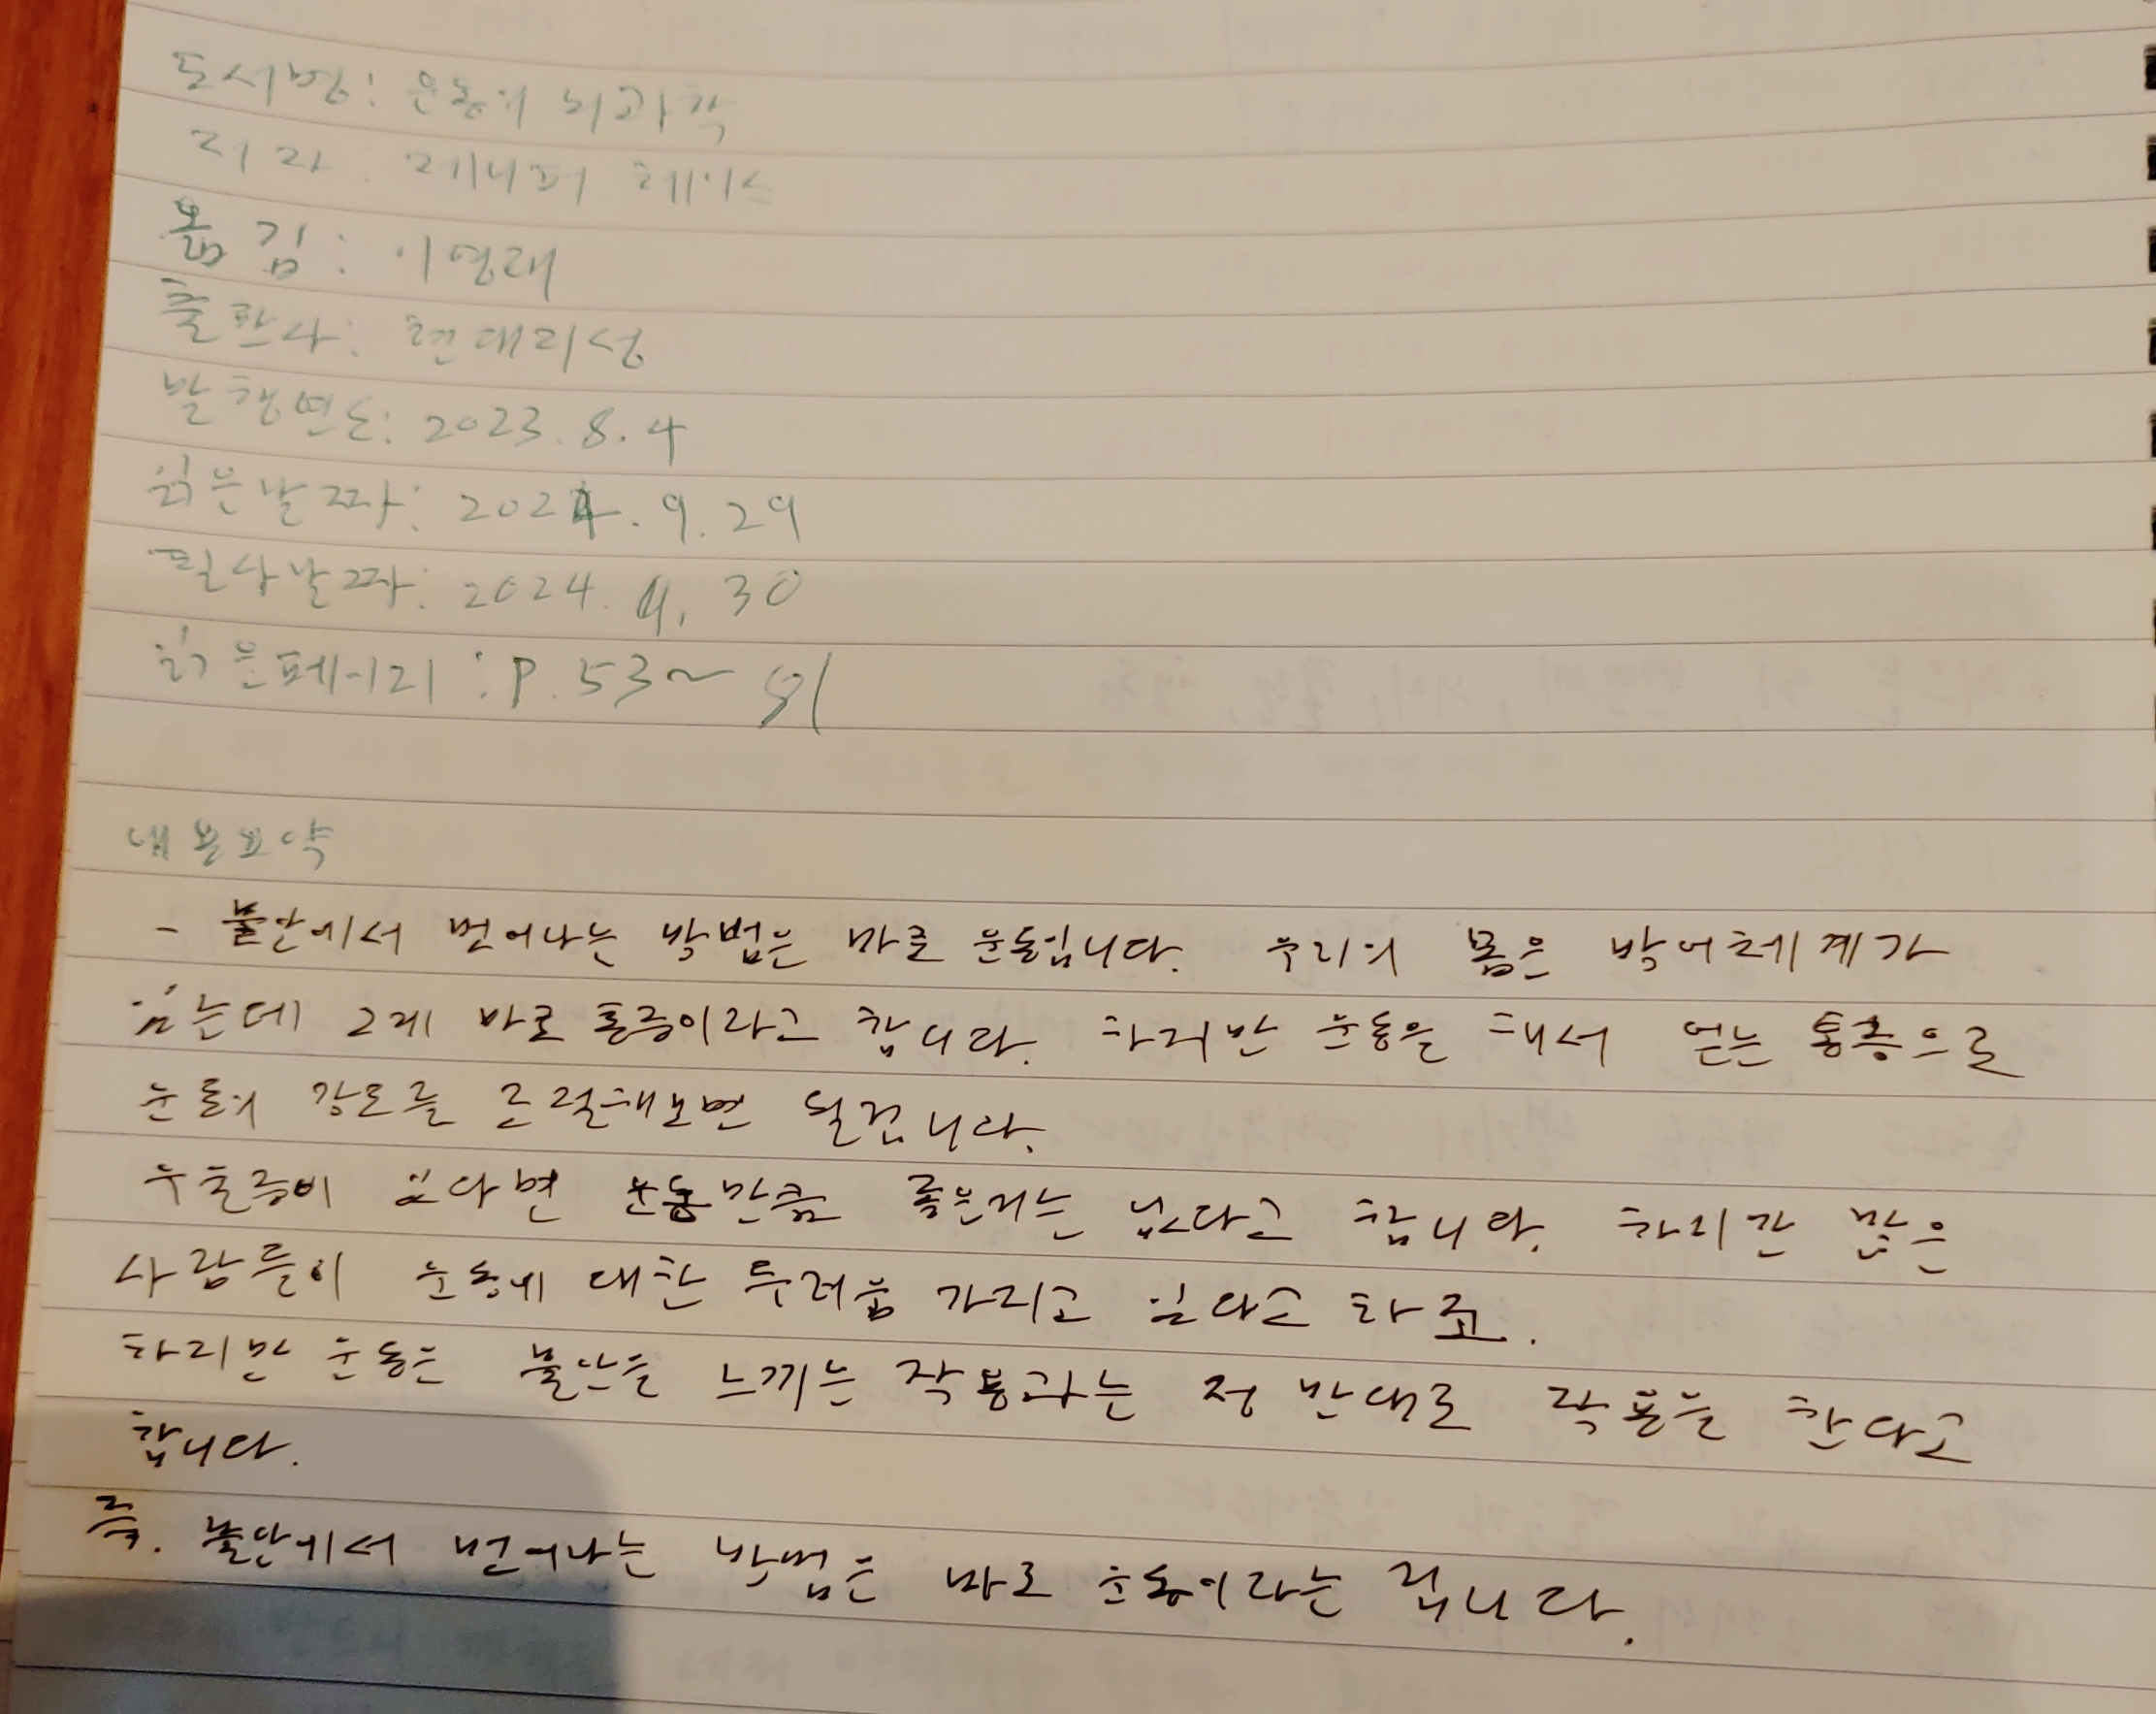 도서명: 운동의 뇌과학
저자: 제니퍼 헤이스
옮김: 이영래
출판사: 현대지성
발행연도: 2023. 8. 4
읽은날짜: 2024. 9. 29
필사날짜: 2024. 9. 30
읽은페이지: P. 53~91
내용요약
- 불안에서 벗어나는 방법은 바로 운동입니다. 우리의 몸은 방어체계가
있는데 그게 바로 통증이라고 합니다. 하지만 운동을 해서 얻는 통증으로
운동의 강도를 조절해보면 될겁니다.
우울증이 있다면 운동만큼 좋은거는 없다고 합니다. 하지만 많은
사람들이 운동에 대한 두려움 가지고 있다고 하죠.
하지만 운동은 불안을 느끼는 작용과는 정 반대로 작용을 한다고
합니다.
즉. 불안에서 벗어나는 방법은 바로 운동이라는 겁니다.